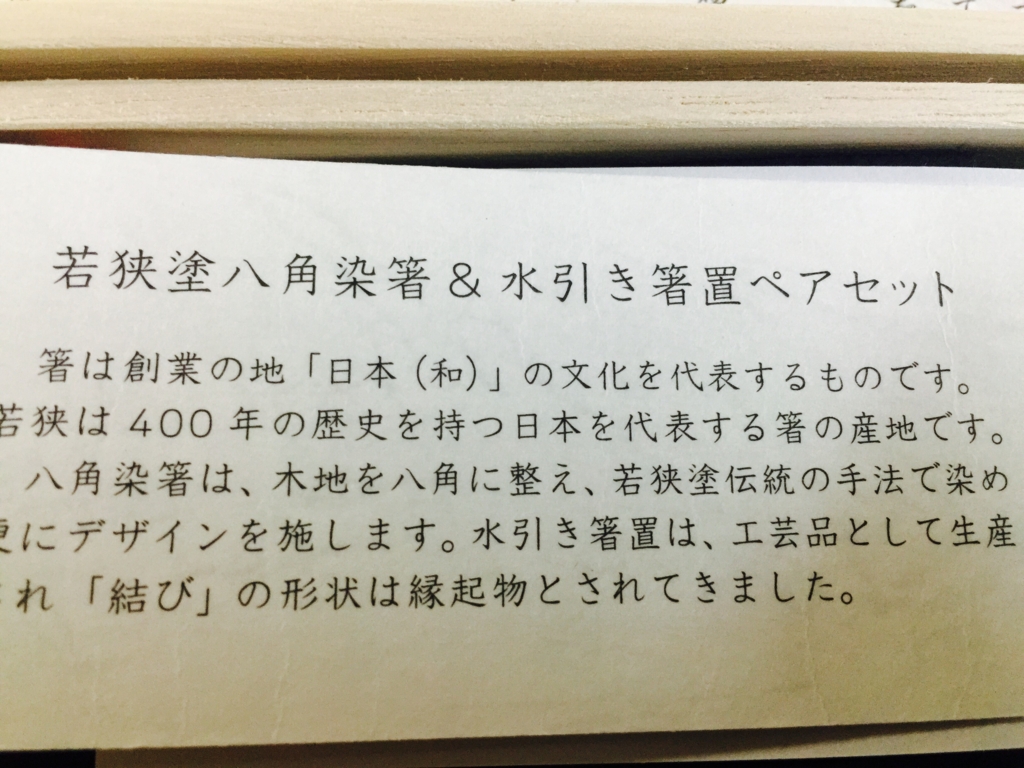 若狭塗八角染箸&水引き箸置ペアセット
箸は創業の地「日本(和)」の文化を代表するものです。
若狭は400年の歴史を持つ日本を代表する箸の産地です。
八角染箸は、木地を八角に整え、若狭塗伝統の手法で染め
更にデザインを施します。水引き箸置は、工芸品として生産
され「結び」の形状は縁起物とされてきました。